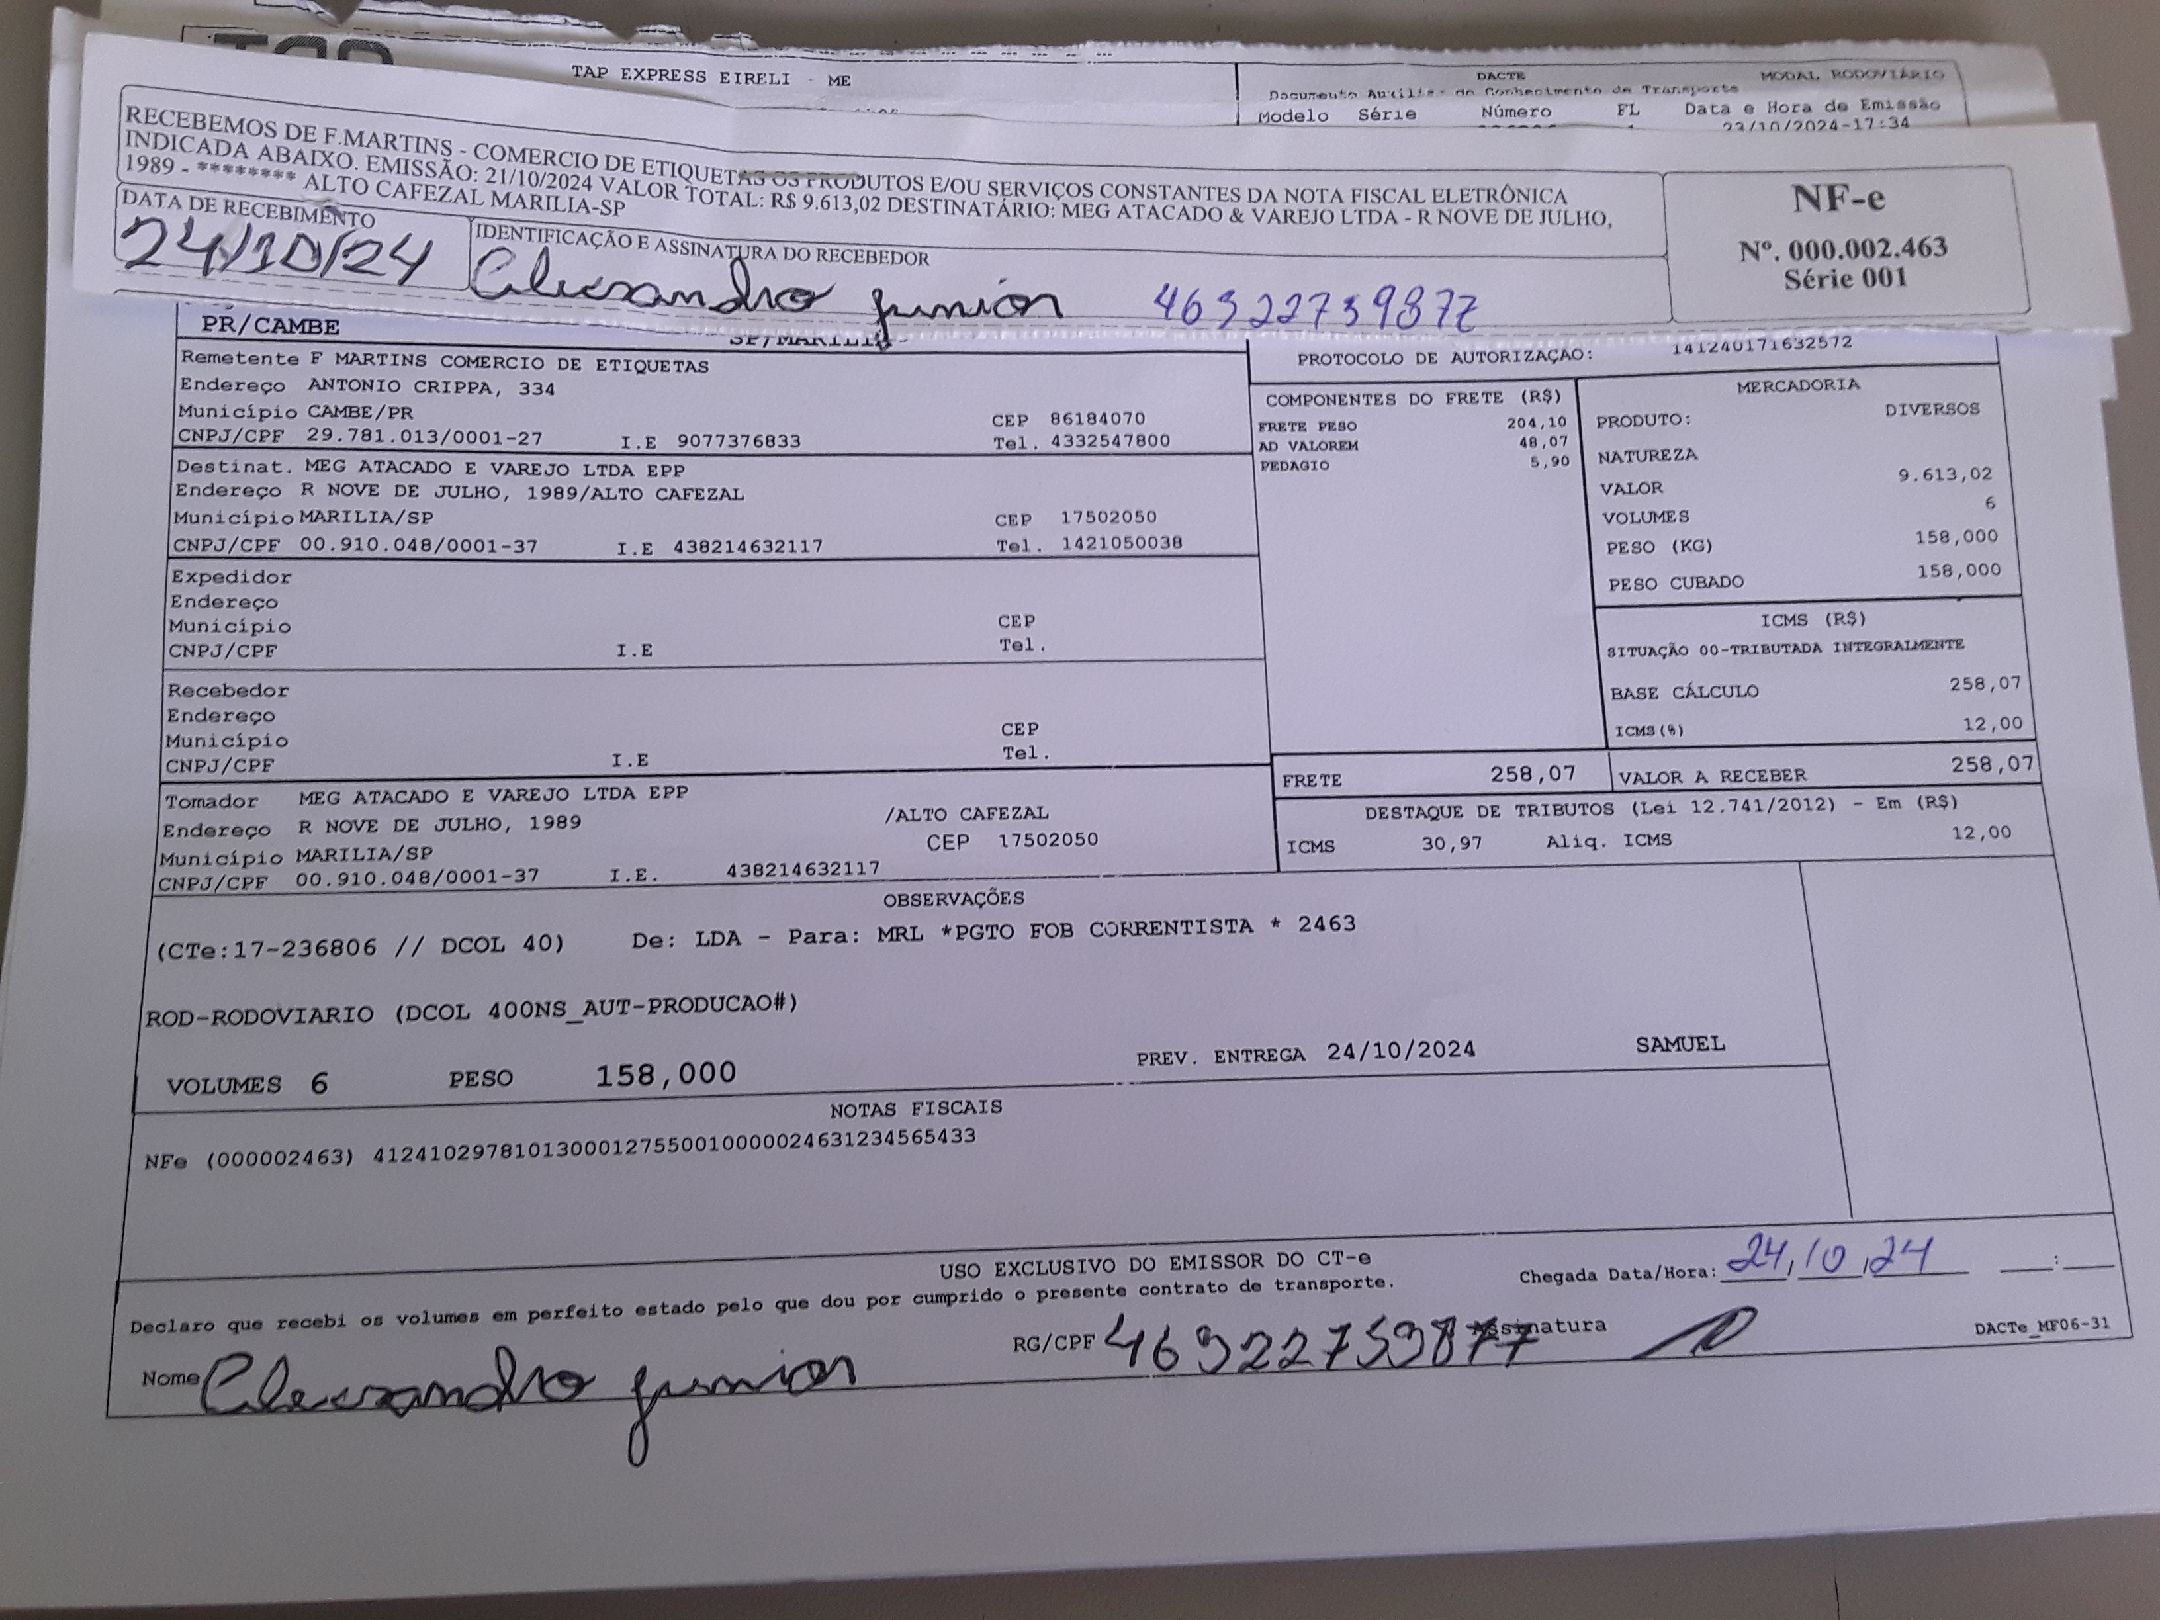 TAP EXPRESS EIRELI - ME
DACTE
MODAL RODOVIÁRIO
Documento Auxiliar do Conhecimento de Transporte
Modelo Série Número FL Data e Hora de Emissão
23/10/2024-17:34
RECEBEMOS DE F.MARTINS - COMERCIO DE ETIQUETAS OS PRODUTOS E/OU SERVIÇOS CONSTANTES DA NOTA FISCAL ELETRÔNICA
INDICADA ABAIXO. EMISSÃO: 21/10/2024 VALOR TOTAL: R$ 9.613,02 DESTINATÁRIO: MEG ATACADO & VAREJO LTDA - R NOVE DE JULHO,
1989 - ******** ALTO CAFEZAL MARILIA-SP
DATA DE RECEBIMENTO
24/10/24
IDENTIFICAÇÃO E ASSINATURA DO RECEBEDOR
Alexsandro junior 46322739877
NF-e
Nº. 000.002.463
Série 001
PR/CAMBE
SP/MARILIA
Remetente F MARTINS COMERCIO DE ETIQUETAS
Endereço ANTONIO CRIPPA, 334
Município CAMBE/PR CEP 86184070
CNPJ/CPF 29.781.013/0001-27 I.E 9077376833 Tel. 4332547800
Destinat. MEG ATACADO E VAREJO LTDA EPP
Endereço R NOVE DE JULHO, 1989/ALTO CAFEZAL
Município MARILIA/SP CEP 17502050
CNPJ/CPF 00.910.048/0001-37 I.E 438214632117 Tel. 1421050038
Expedidor
Endereço
Município CEP
CNPJ/CPF I.E Tel.
Recebedor
Endereço
Município CEP
CNPJ/CPF I.E Tel.
Tomador MEG ATACADO E VAREJO LTDA EPP
Endereço R NOVE DE JULHO, 1989 /ALTO CAFEZAL
Município MARILIA/SP CEP 17502050
CNPJ/CPF 00.910.048/0001-37 I.E. 438214632117
PROTOCOLO DE AUTORIZAÇAO: 141240171632572
COMPONENTES DO FRETE (R$)
FRETE PESO 204,10
AD VALOREM 48,07
PEDAGIO 5,90
MERCADORIA
PRODUTO: DIVERSOS
NATUREZA
VALOR 9.613,02
VOLUMES 6
PESO (KG) 158,000
PESO CUBADO 158,000
ICMS (R$)
SITUAÇÃO 00-TRIBUTADA INTEGRALMENTE
BASE CÁLCULO 258,07
ICMS(%) 12,00
FRETE 258,07 VALOR A RECEBER 258,07
DESTAQUE DE TRIBUTOS (Lei 12.741/2012) - Em (R$)
ICMS 30,97 Aliq. ICMS 12,00
OBSERVAÇÕES
(CTe:17-236806 // DCOL 40) De: LDA - Para: MRL *PGTO FOB CORRENTISTA * 2463
ROD-RODOVIARIO (DCOL 400NS_AUT-PRODUCAO#)
VOLUMES 6 PESO 158,000 PREV. ENTREGA 24/10/2024 SAMUEL
NOTAS FISCAIS
NFe (000002463) 41241029781013000127550010000024631234565433
USO EXCLUSIVO DO EMISSOR DO CT-e
Chegada Data/Hora: 24/10/24 :
Declaro que recebi os volumes em perfeito estado pelo que dou por cumprido o presente contrato de transporte.
Nome Alexsandro junior RG/CPF 46322739877 Assinatura
DACTe_MF06-31